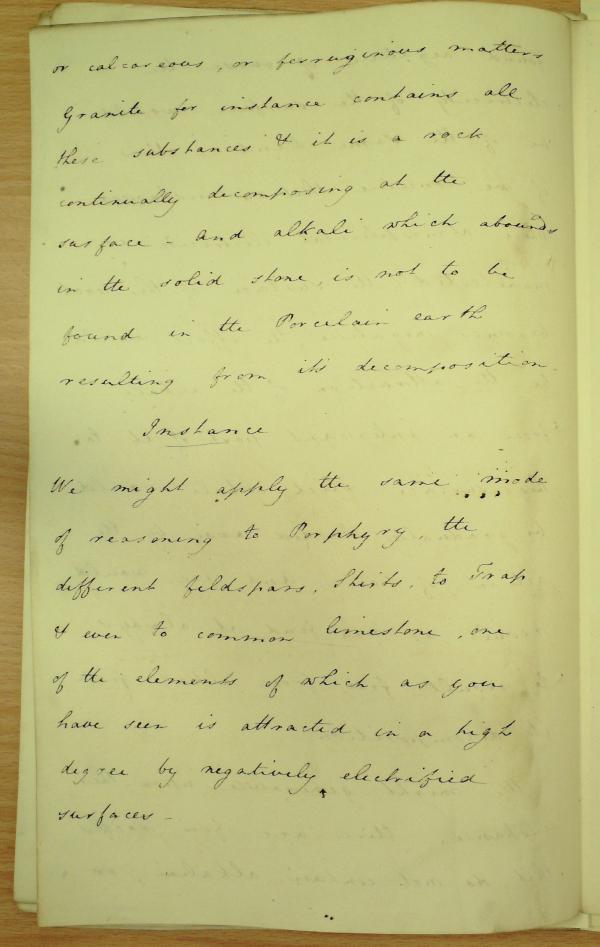 or calcareous, or ferruginous matters
Granite for instance contains all
these substances & it is a rock
continually decomposing at the
surface - and alkali which abounds
in the solid stone, is not to be
found in the Porcelain earth
resulting from it's decomposition.
Instance
We might apply the same mode
of reasoning to Porphyry, the
different feldspars, Shirts, to Trap
& even to common limestone, one
of the elements of which as you
have seen is attracted in a high
degree by negatively electrified
surfaces -